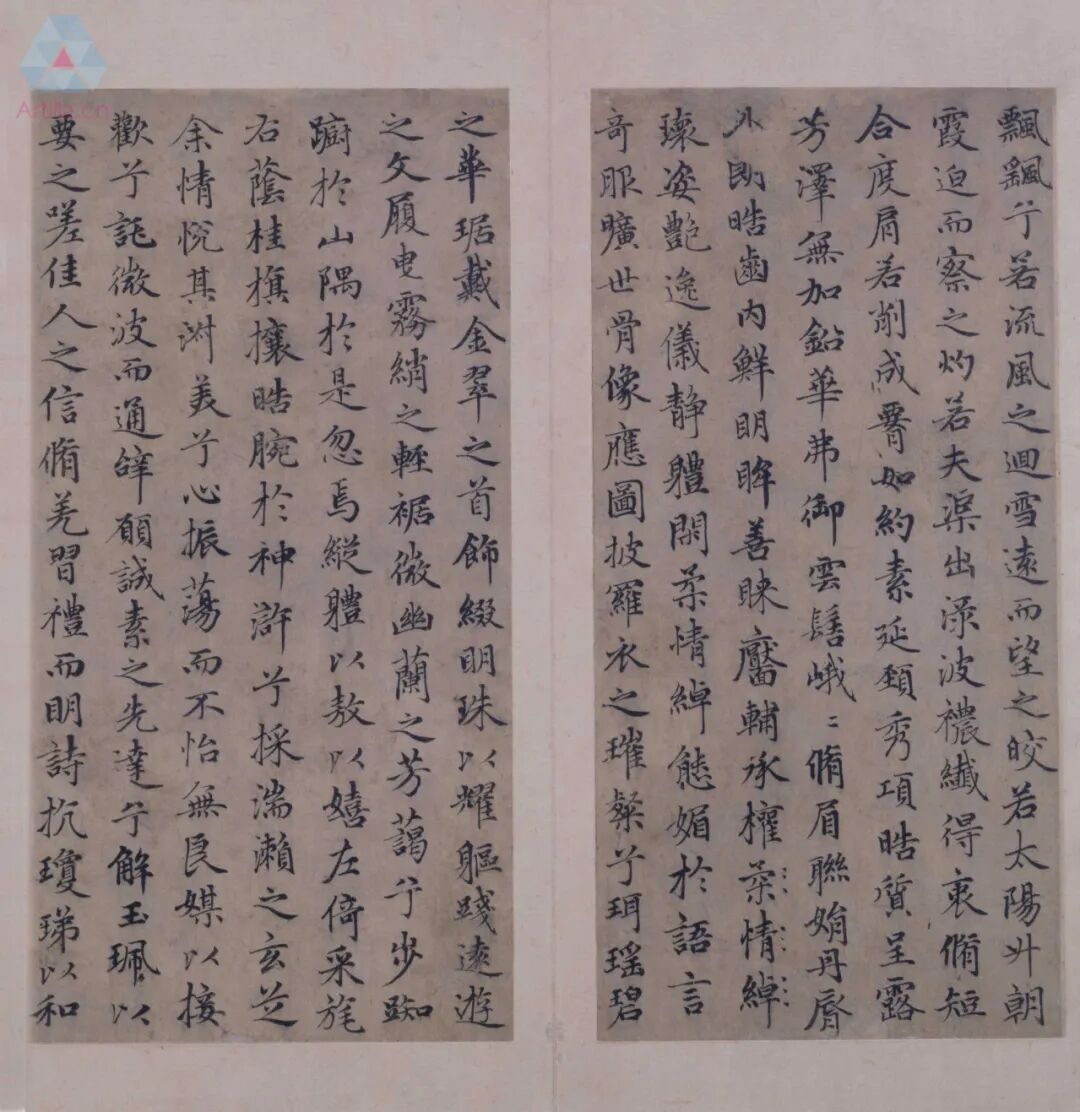 飄飖兮若流風之迴雪遠而望之皎若太陽升朝
霞迫而察之灼若夫渠出淥波穠纖得衷脩短
合度肩若削成署如約素延頸秀項皓質呈露
芳澤無加鉛華弗御雲髻峨〻脩眉聯娟丹脣
外朗皓齒內鮮明眸善睞靨輔承權柔情綽
瓌姿艷逸儀靜體閑柔情綽態媚於語言
奇服曠世骨像應圖披羅衣之璀粲兮珥瑤碧
之華琚戴金翠之首飾綴明珠以耀軀踐遠遊
之文履曳霧綃之輕裾微幽蘭之芳藹兮步踟
躕於山隅於是忽焉縱體以敖以嬉左倚采旄
右蔭桂旗攘皓腕於神滸兮採湍瀨之玄芝
余情悅其淑美兮心振蕩而不怡無良媒以接
歡兮託微波而通辭願誠素之先達兮解玉珮以
要之嗟佳人之信脩羌習禮而明詩抗瓊珶以和
Artlib.cn